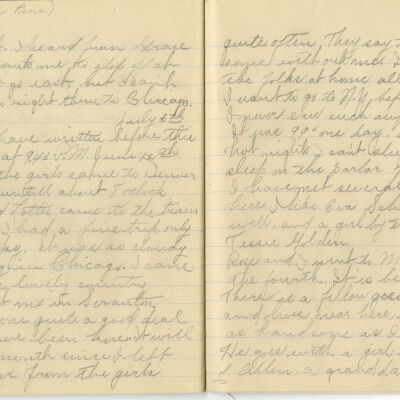 Penn.)
I heard from Grace
wants me to stop of at
go east, but I
night thru to Chicago.
July 5th
have written before this
at 9 45 P.M. June 12th
the girls came to Denver
until about 8 oclock
Lottie came to the train
I had a fine trip, only
It was so cloudy
in Chicago. I came
lovely country
met me in Scranton
gone quite a good deal
have been here. It will
month since I left
from the girls
quite often, They say
some without me. I
the folks at home all
I want to go to N.Y. bef
I never saw such
It was 99° one day.
hot nights I cant slee
sleep on the parlor f
I have met several
here. I like Eva Sch
well, and a girl by t
Tessie Golden.
Rose and I went to M
the fourth. It is be
There is a fellow goes
and lives near here.
as handsome as I
He goes with a girl
Allen, a grand da